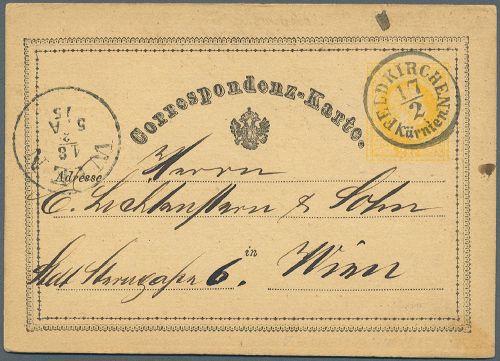 Correspondenz-Karte.
FELDKIRCHEN
17/2
Kärnten
WIEN
18
5 A
75
Adresse
Herrn
C. Lichtenstern & Sohn
in
Stadt 6. Wien